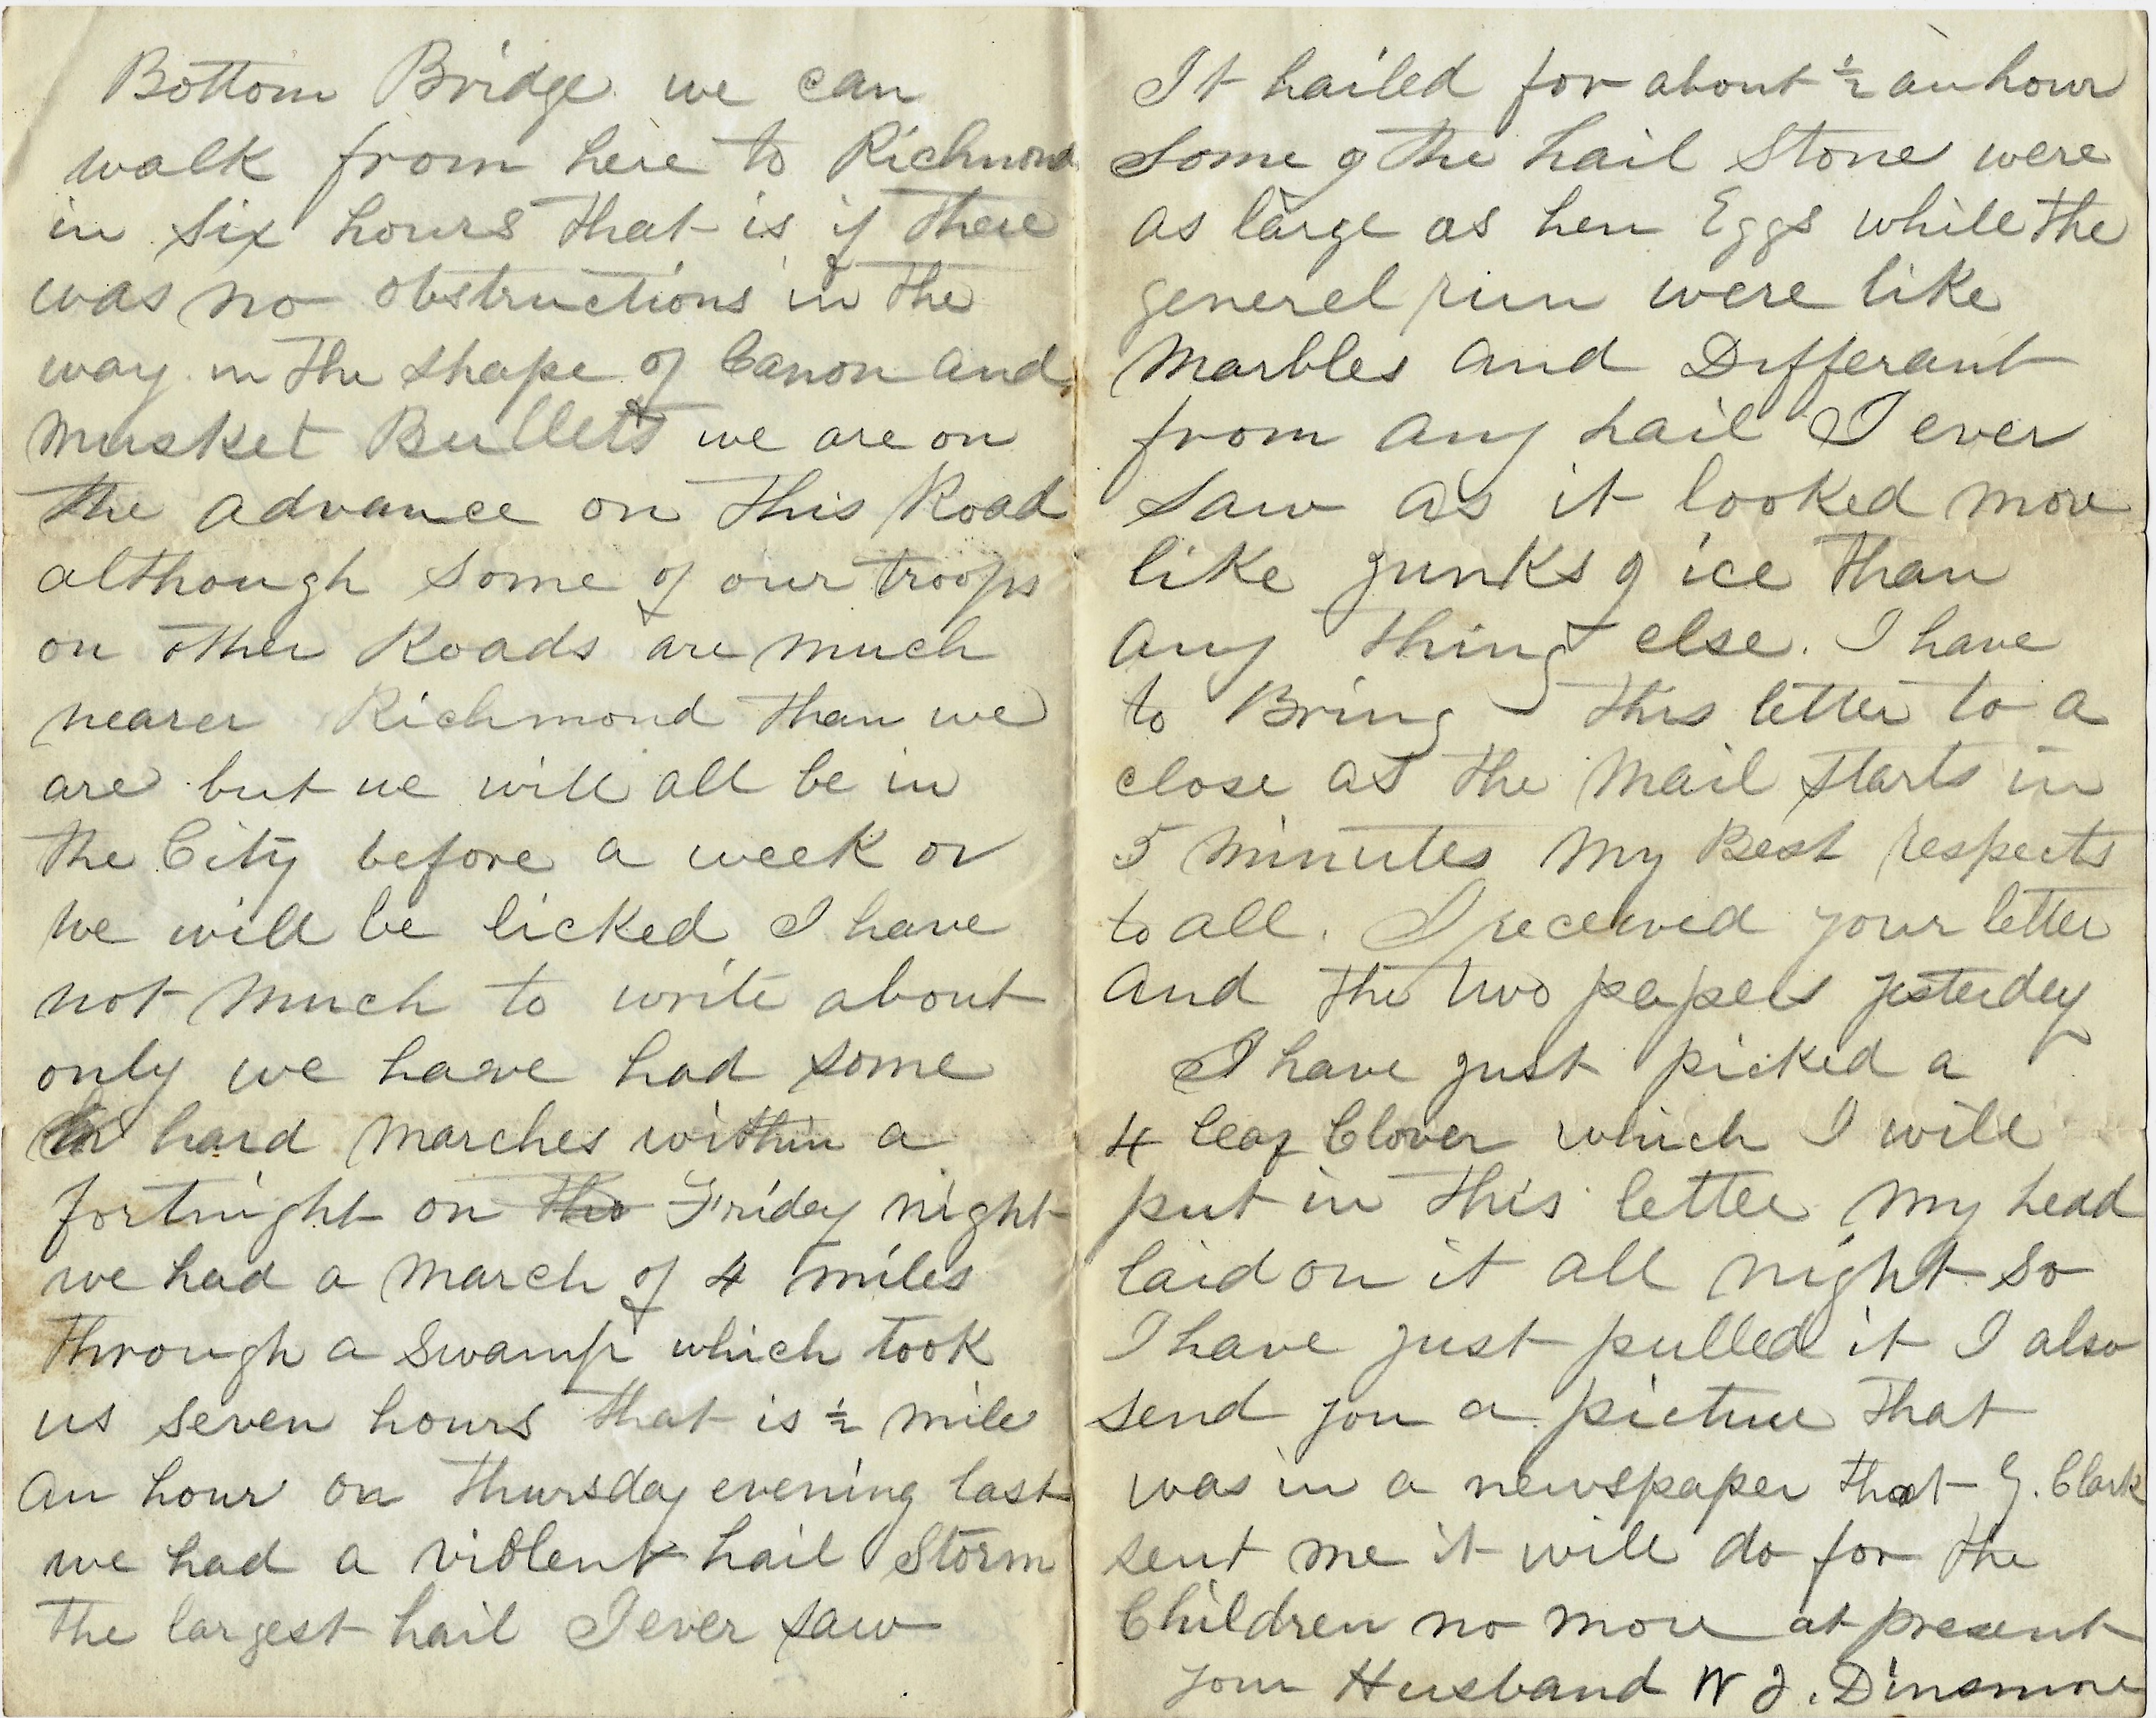 Bottom Bridge we can
walk from here to Richmond
in six hours that is if there
was no obstructions in the
way in the shape of Canon and
musket Bullets we are on
the advance on this Road
although some of our troops
on other Roads are much
nearer Richmond than we
are but we will all be in
the City before a week or
we will be licked I have
not much to write about
only we have had some
hard marches within a
fortnight on the Friday night
we had a march of 4 miles
through a swamp which took
us seven hours that is ½ mile
an hour on thursday evening last
we had a violent hail Storm
the largest hail I ever saw
It hailed for about ½ an hour
Some of the hail Stone were
as large as hen Eggs while the
generel run were like
Marbles and Differant
from any hail I ever
saw as it looked more
like junks of ice than
any thing else. I have
to Bring this letter to a
close as the Mail starts in
5 minutes My Best respects
to all. I received your letter
and the two papers yesterday
I have just picked a
4 leaf Clover which I will
put in this letter My head
laid on it all night so
I have just pulled it I also
send you a picture that
was in a newspaper that G. Clark
sent me it will do for the
Children no more at present
your Husband W J. Dinsmore